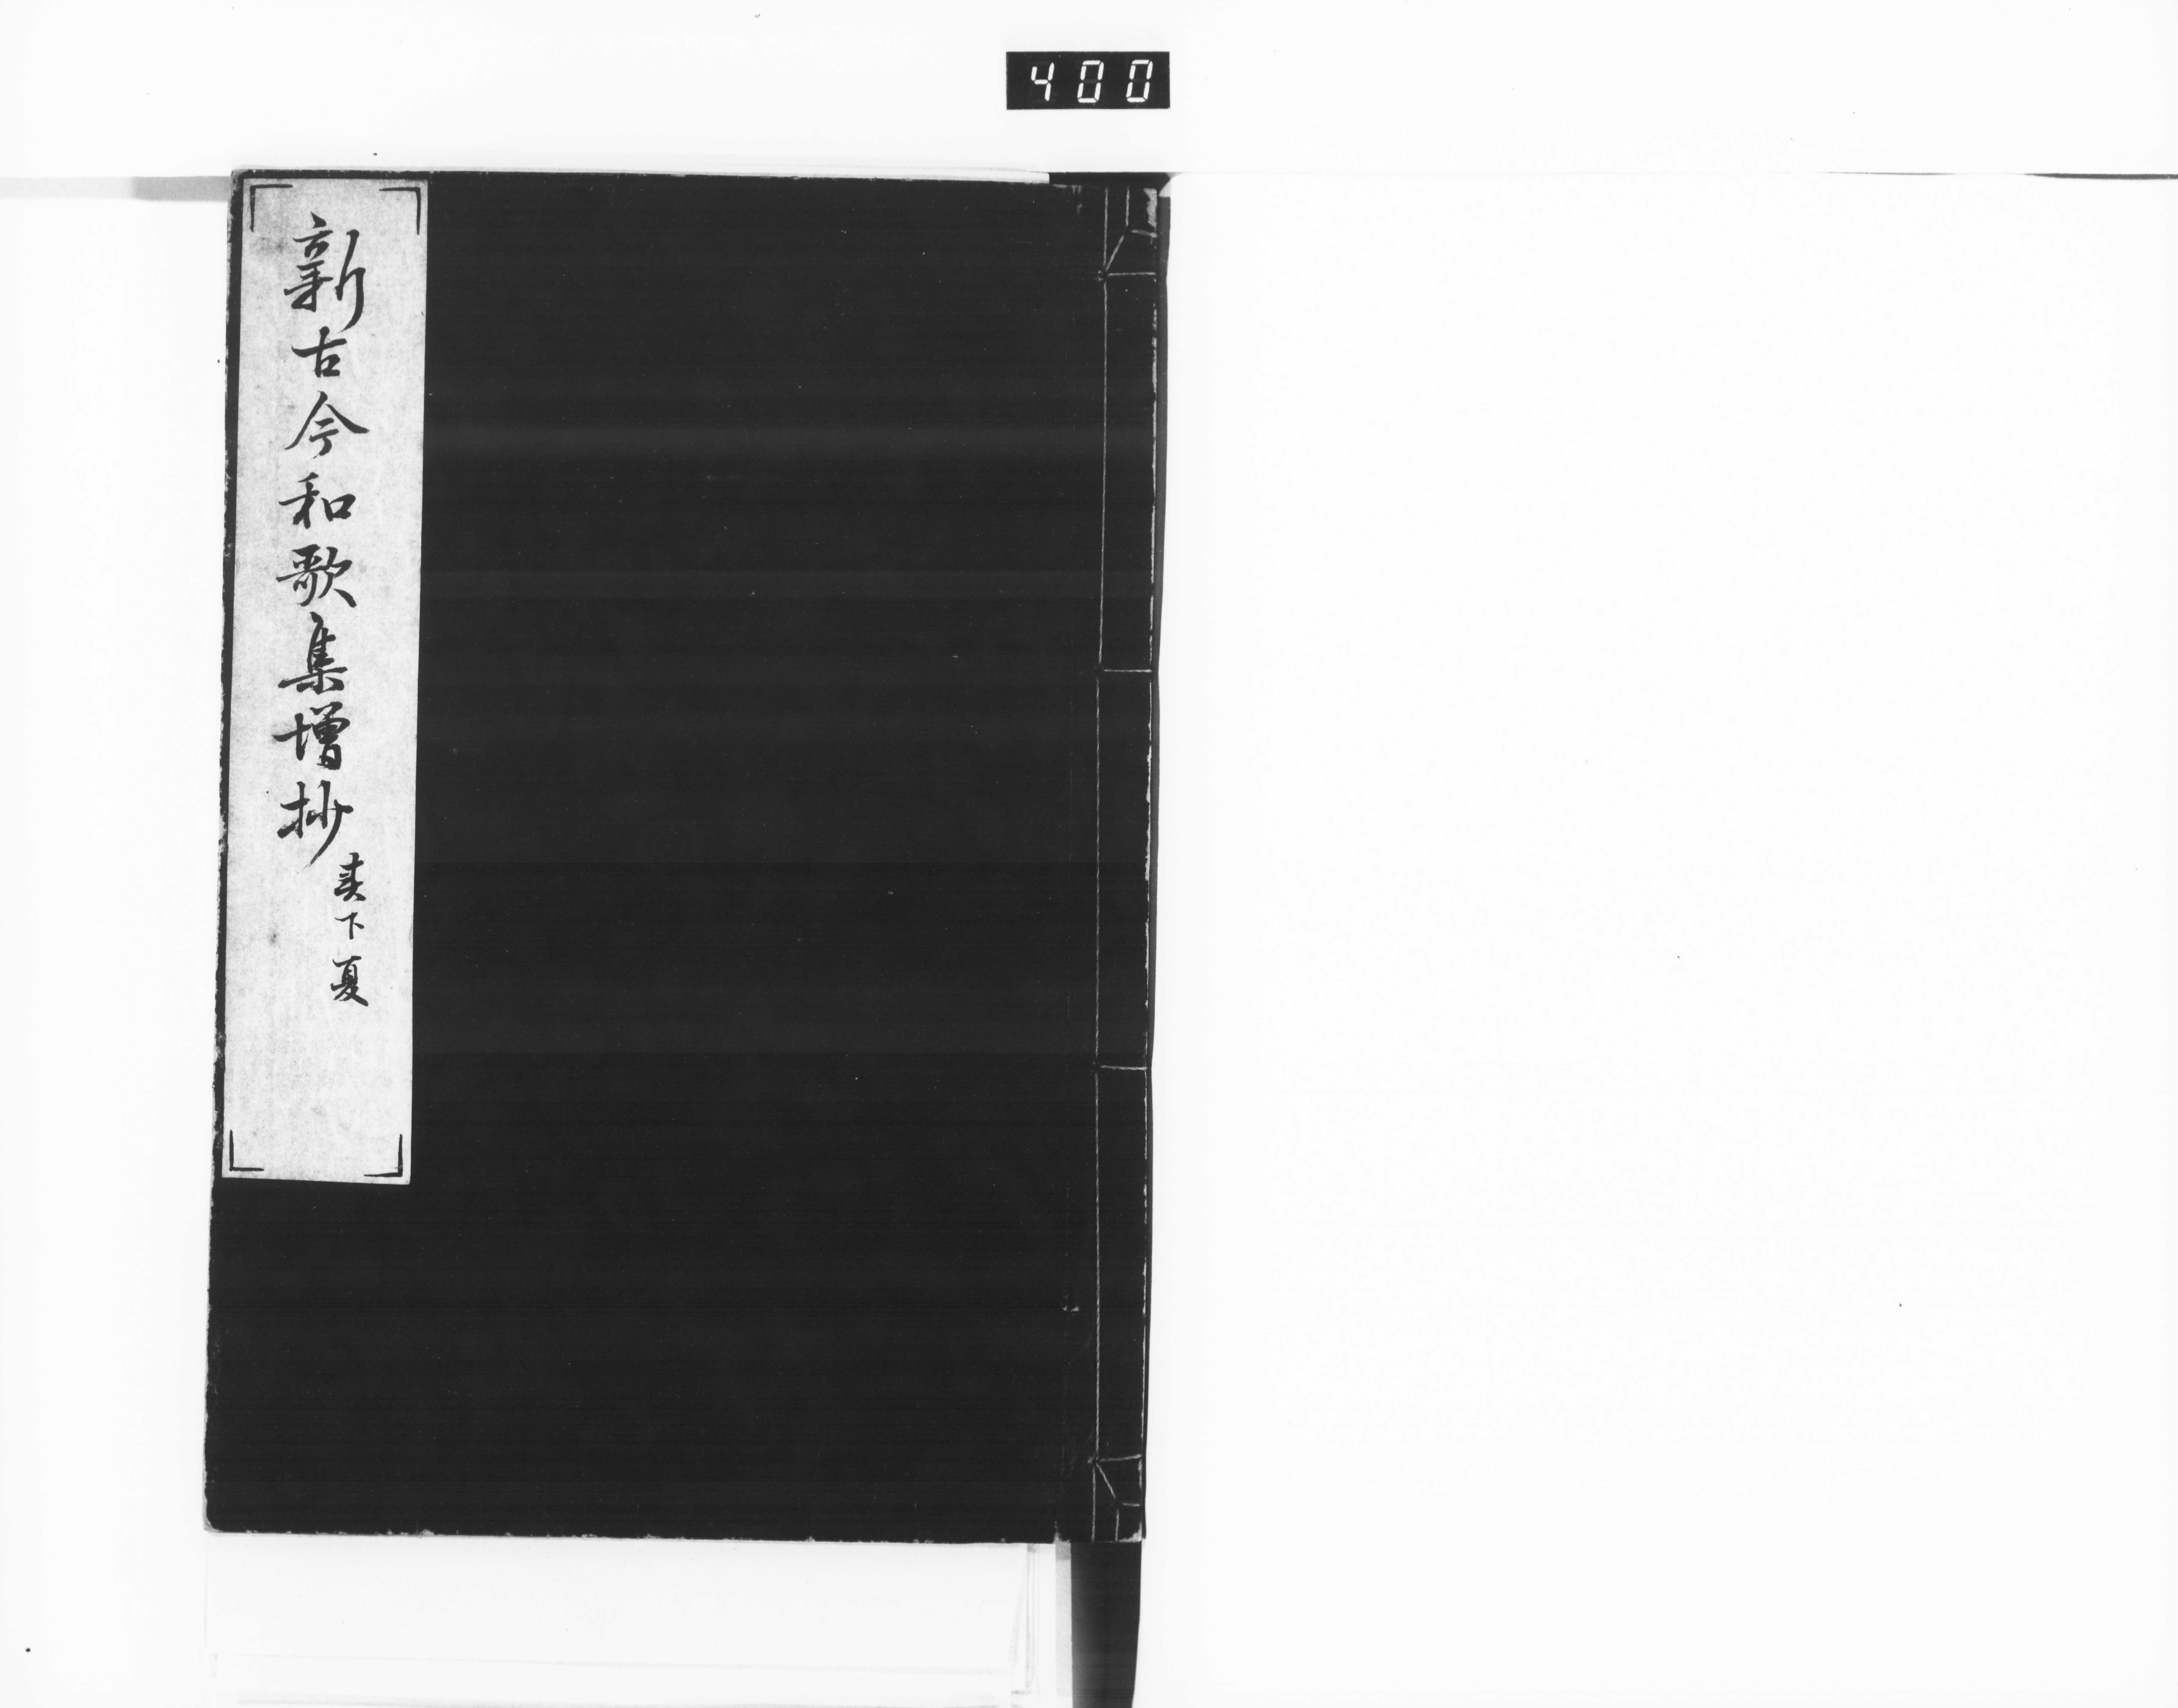 400
新古今和歌集増抄
春下夏